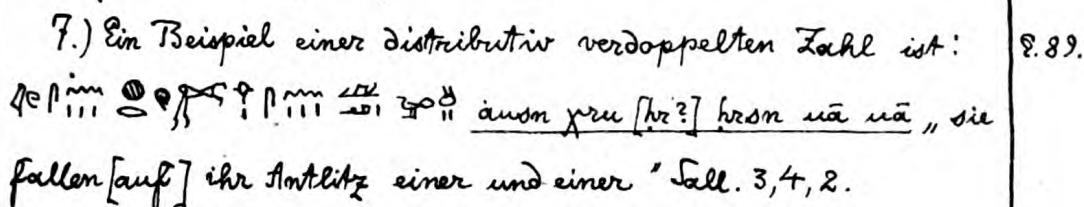 7.) Ein Beispiel einer distributiv verdoppelten Zahl ist: §. 89.
àusn χru [ḥr?] ḥrsn uā uā „ sie
fallen [auf] ihr Antlitz einer und einer " Sall. 3,4,2.